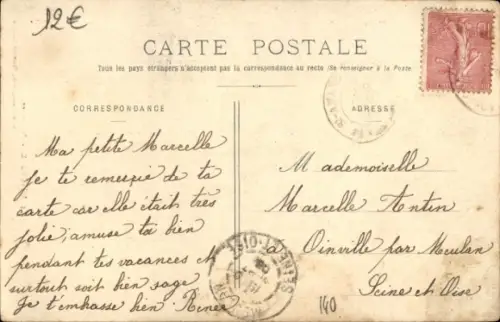 12€
CARTE POSTALE
Tous les pays étrangers n'acceptent pas la correspondance au recto (Se renseigner à la Poste)
CORRESPONDANCE
ADRESSE
Ma petite Marcelle
Je te remercie de ta
carte car elle était très
jolie, amuse toi bien
pendant tes vacances et
surtout soit bien sage
Je t'embrasse bien Renée
Mademoiselle
Marcelle Antin
à
Oinville par Meulan
Seine et Oise
140
SEINE-ET-OISE